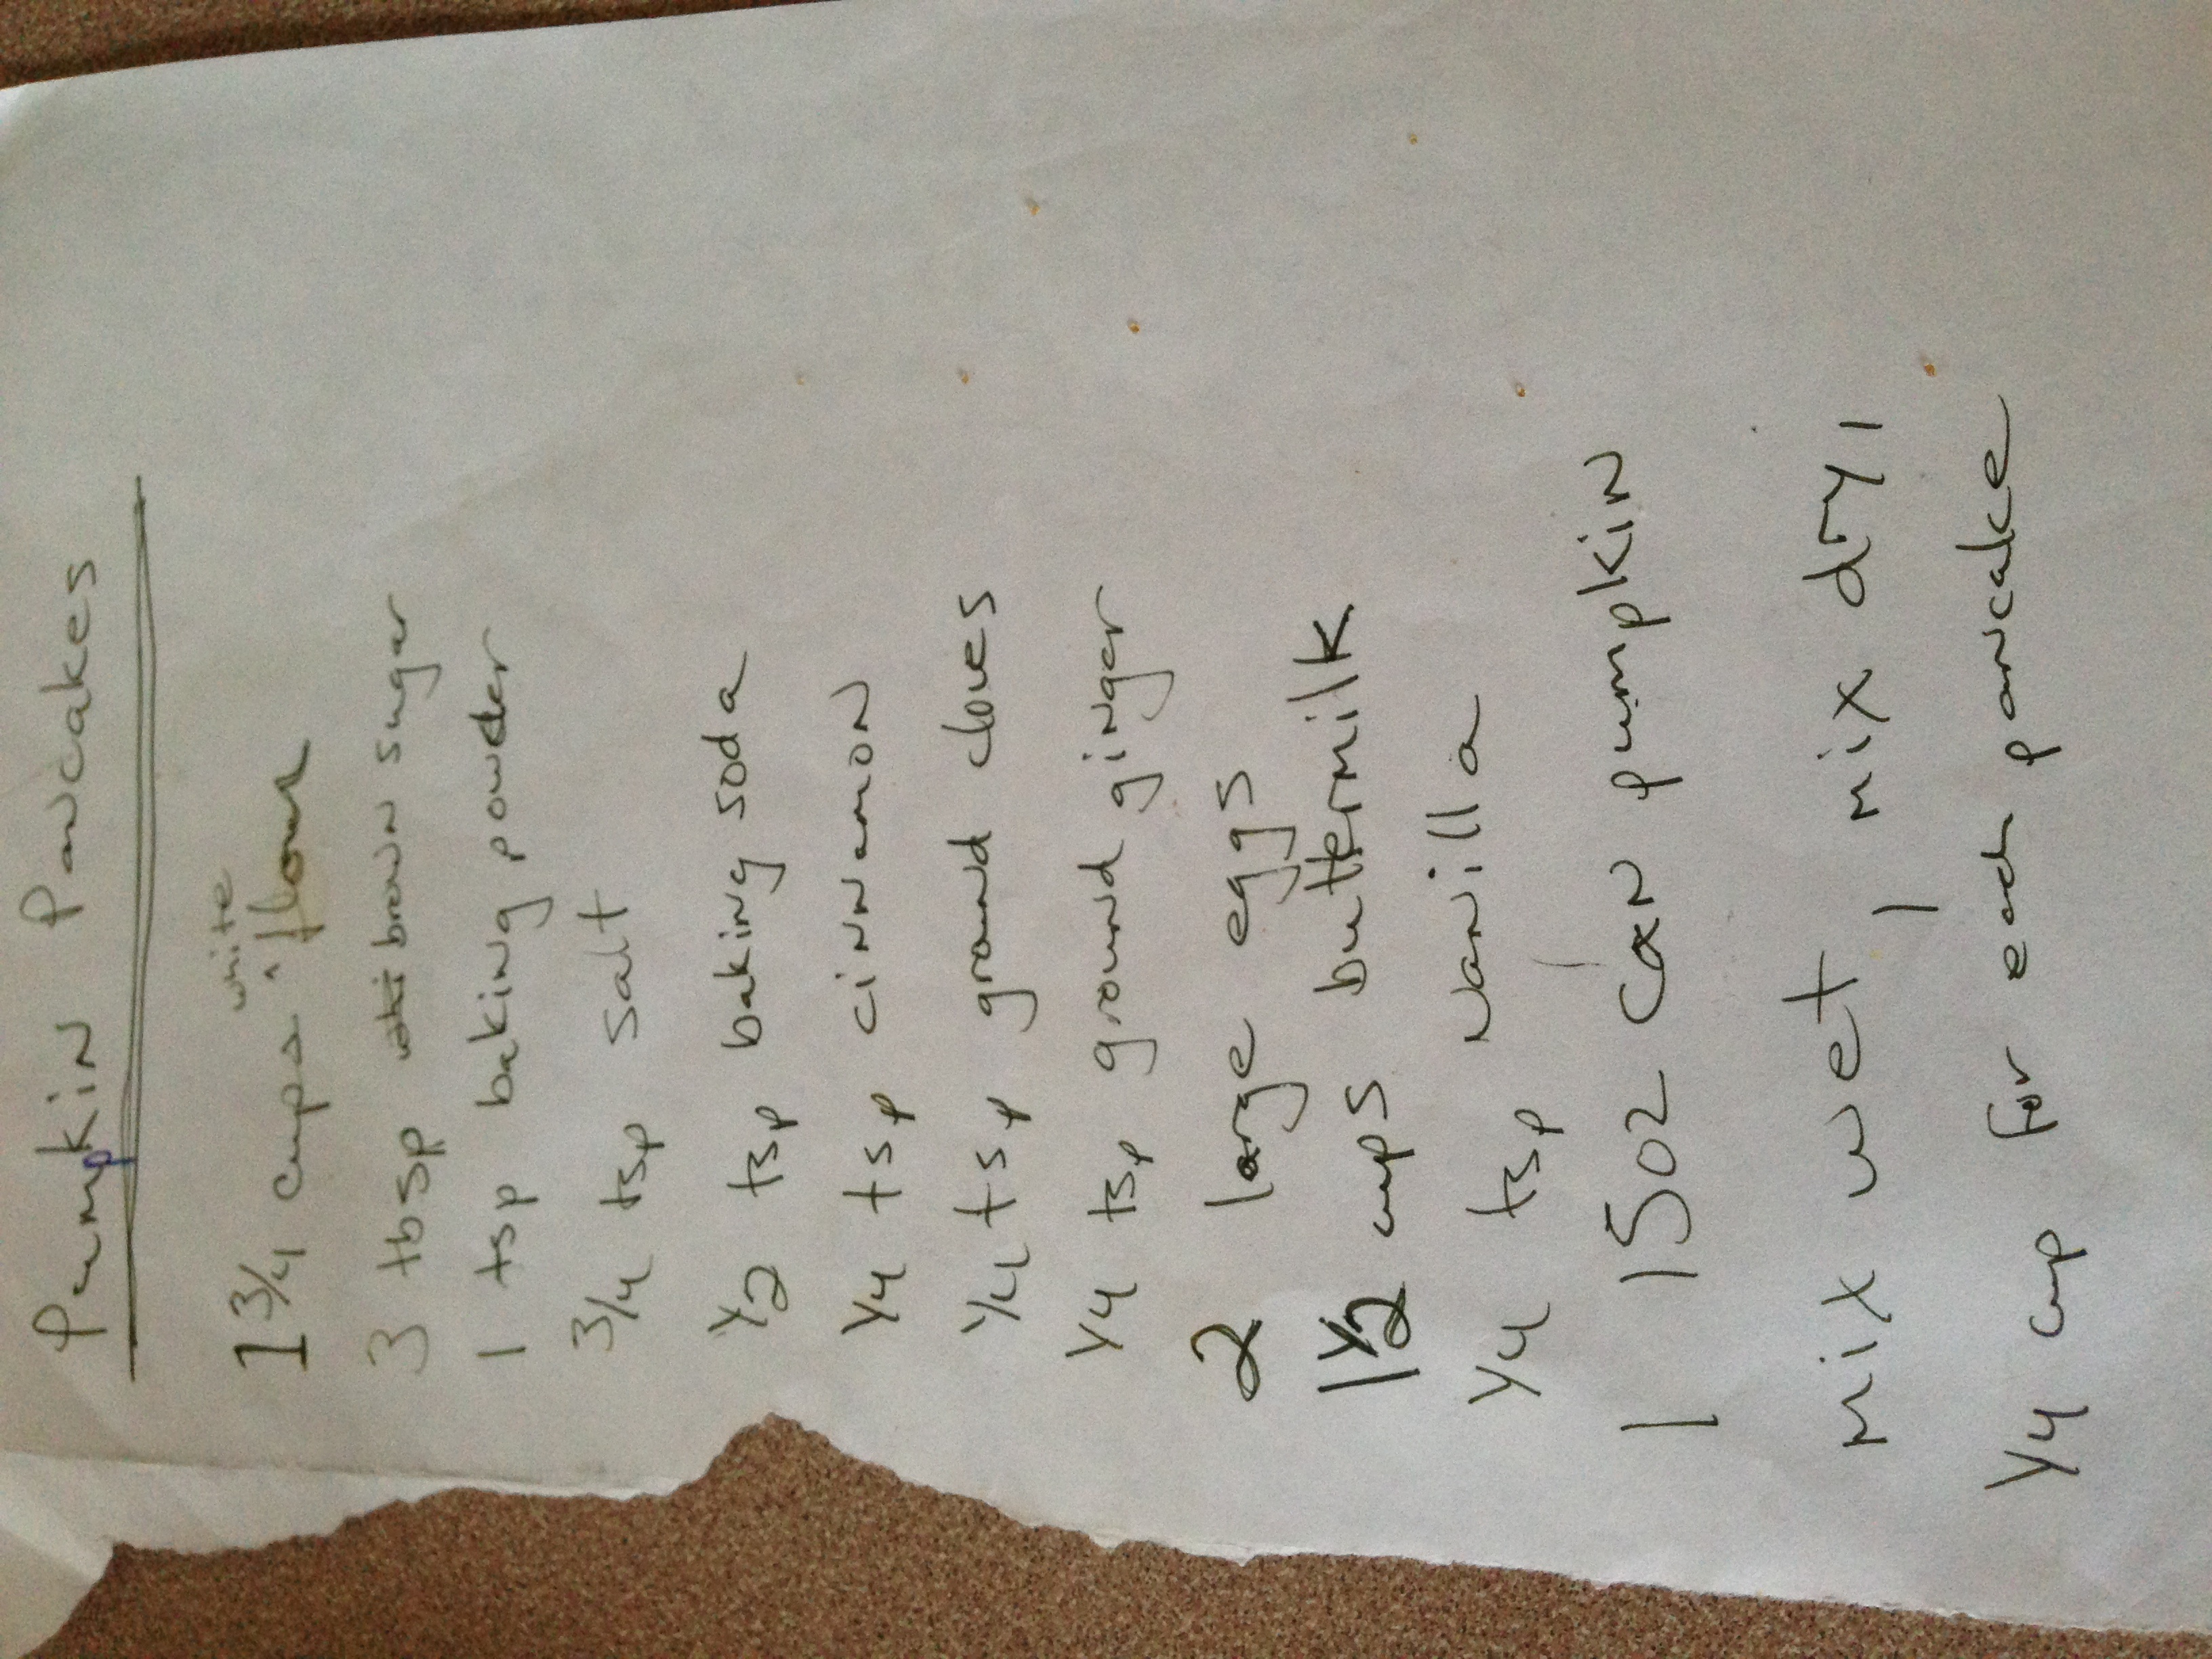 Pumpkin Pancakes
1 3/4 cups ^ white flour
3 tbsp brown sugar
1 tsp baking powder
3/4 tsp salt
1/2 tsp baking soda
1/4 tsp cinnamon
1/4 tsp ground cloves
1/4 tsp ground ginger
2 large eggs
1 1/2 cups buttermilk
1/4 tsp vanilla
1 15oz can pumpkin
mix wet, mix dry,
1/4 cup for each pancake